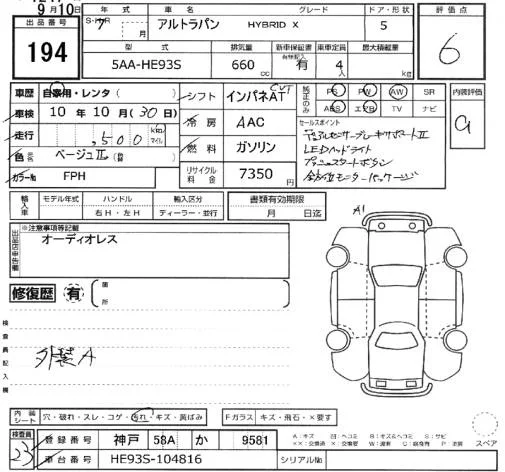 9月10日
出品番号 194
年式 S・H・R 7 月
車名 アルトラパン
グレード HYBRID X
ドア・形状 5
評価点 6
型式 5AA-HE93S
排気量 660 cc
新車保証書 有無記入 有
乗車定員 4 人
最大積載量 kg
車歴 自家用・レンタ( )
車検 10年10月(30日)
走行 ,500 km マイル
色 色名 ベージュⅡ
カラー№ FPH
シフト インパネAT CVT
冷房 AAC
燃料 ガソリン
リサイクル料金 7350
純正のみ PS PW AW SR
ABS エアB TV ナビ
セールスポイント
デュアルセンサーブレーキサポートⅡ
LEDヘッドライト
プッシュスタートボタン
全方位モニターパッケージ
内装評価
輸入車 モデル年式 ハンドル 右H・左H 輸入区分 ディーラー・並行
書類有効期限 月 日迄
※注意事項等記載
オーディオレス
修復歴 有 箇所
A1
検査員記入欄
外装A
内装シート 穴・破れ・スレ・コゲ・汚れ・キズ・黄ばみ
Fガラス キズ・飛石・×要す
検査員 23
登録番号 神戸 58A か 9581
車台番号 HE93S-104816
シリアル№
スペア